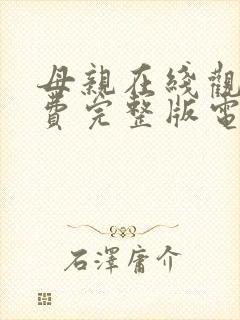 母親在綫觀
費完整版電
石澤庸介